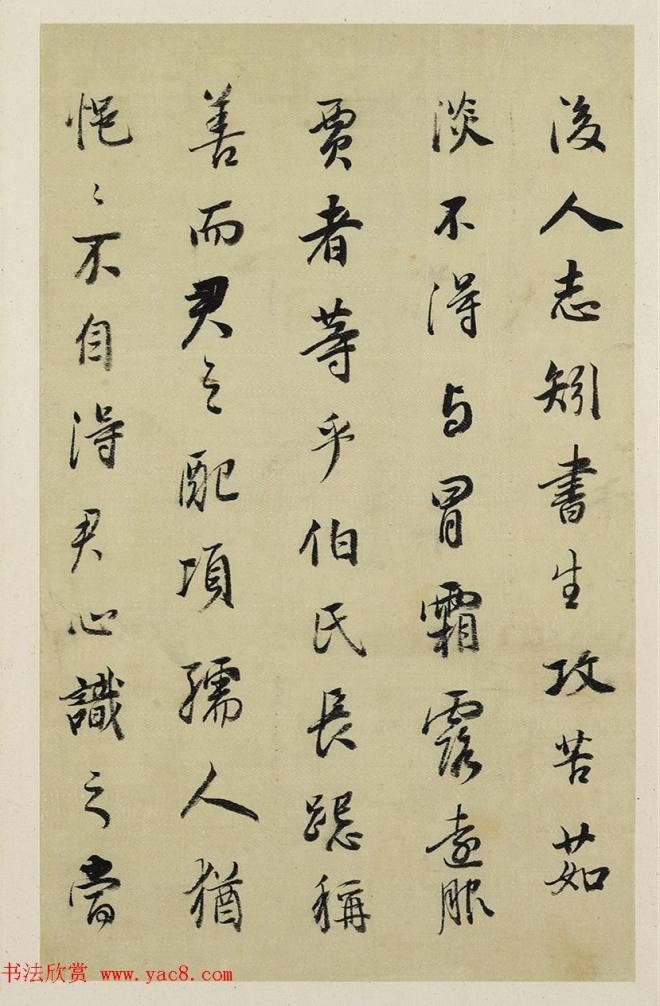 後人志矧書生攻苦茹
淡不得与冒霜露遠服
賈者等乎伯氏長跽稱
善而君之配項孺人猶
悒〻不自得君心識之嘗
书法欣赏 www.yac8.com